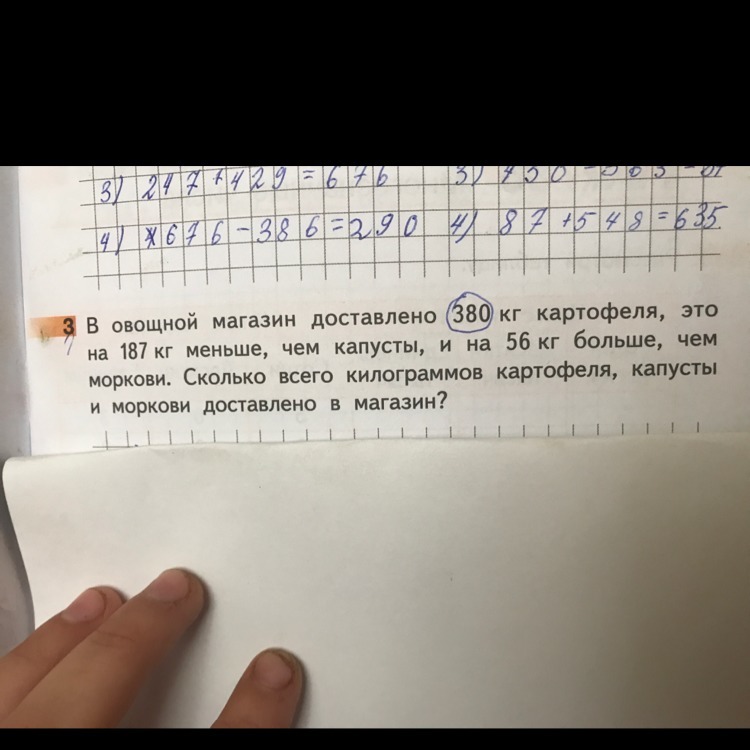 3) 247+429=676
4) 676-386=290 4) 87+548=635
3 В овощной магазин доставлено 380 кг картофеля, это
на 187 кг меньше, чем капусты, и на 56 кг больше, чем
моркови. Сколько всего килограммов картофеля, капусты
и моркови доставлено в магазин?